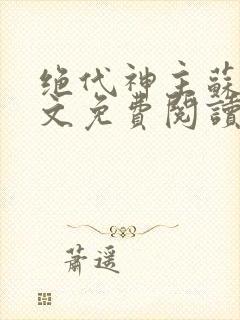 绝代神主蘇
文免費閱讀
蕭遥